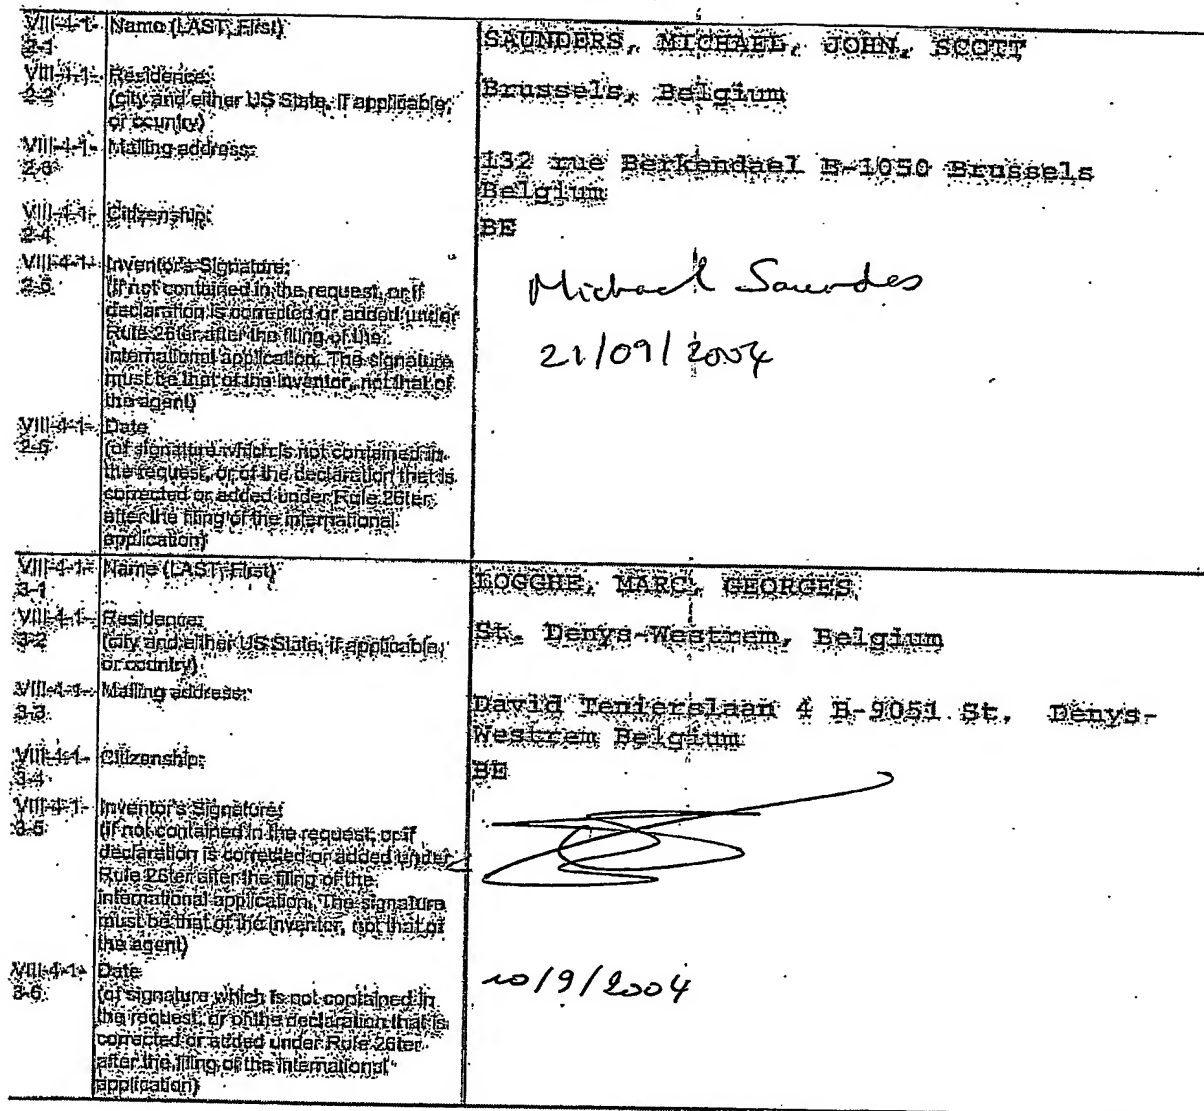 VIII-4-1- Name (LAST, First) SAUNDERS, MICHAEL, JOHN, SCOTT
2-1
VIII-4-1- Residence: Brussels, Belgium
2-2 (city and either US State, if applicable,
or country)
VIII-4-1- Mailing address: 132 rue Berkendael B-1050 Brussels
Belgium
VIII-4-1- Citizenship: BE
2-4
VIII-4-1- Inventor's Signature: Michael Saunders
2-5 (if not contained in the request, or if
declaration is corrected or added under
Rule 26ter after the filing of the
international application. The signature 21/09/2004
must be that of the inventor, not that of
the agent)
VIII-4-1- Date
(of signature which is not contained in
the request, or of the declaration that is
corrected or added under Rule 26ter
after the filing of the international
application)
VIII-4-1- Name (LAST, First) LOGGHE, MARC, GEORGES
3-1
VIII-4-1- Residence: St. Denys-Westrem, Belgium
3-2 (city and either US State, if applicable,
or country)
VIII-4-1- Mailing address: David Tenierslaan 4 B-9051 St. Denys-
3-3 Westrem Belgium
VIII-4-1- Citizenship: BE
3-4
VIII-4-1- Inventor's Signature:
3-5 (if not contained in the request, or if
declaration is corrected or added under
Rule 26ter after the filing of the
international application. The signature
must be that of the inventor, not that of
the agent)
VIII-4-1- Date /9/2004
3-6 (of signature which is not contained in
the request, or of the declaration that is
corrected or added under Rule 26ter
after the filing of the international
application)